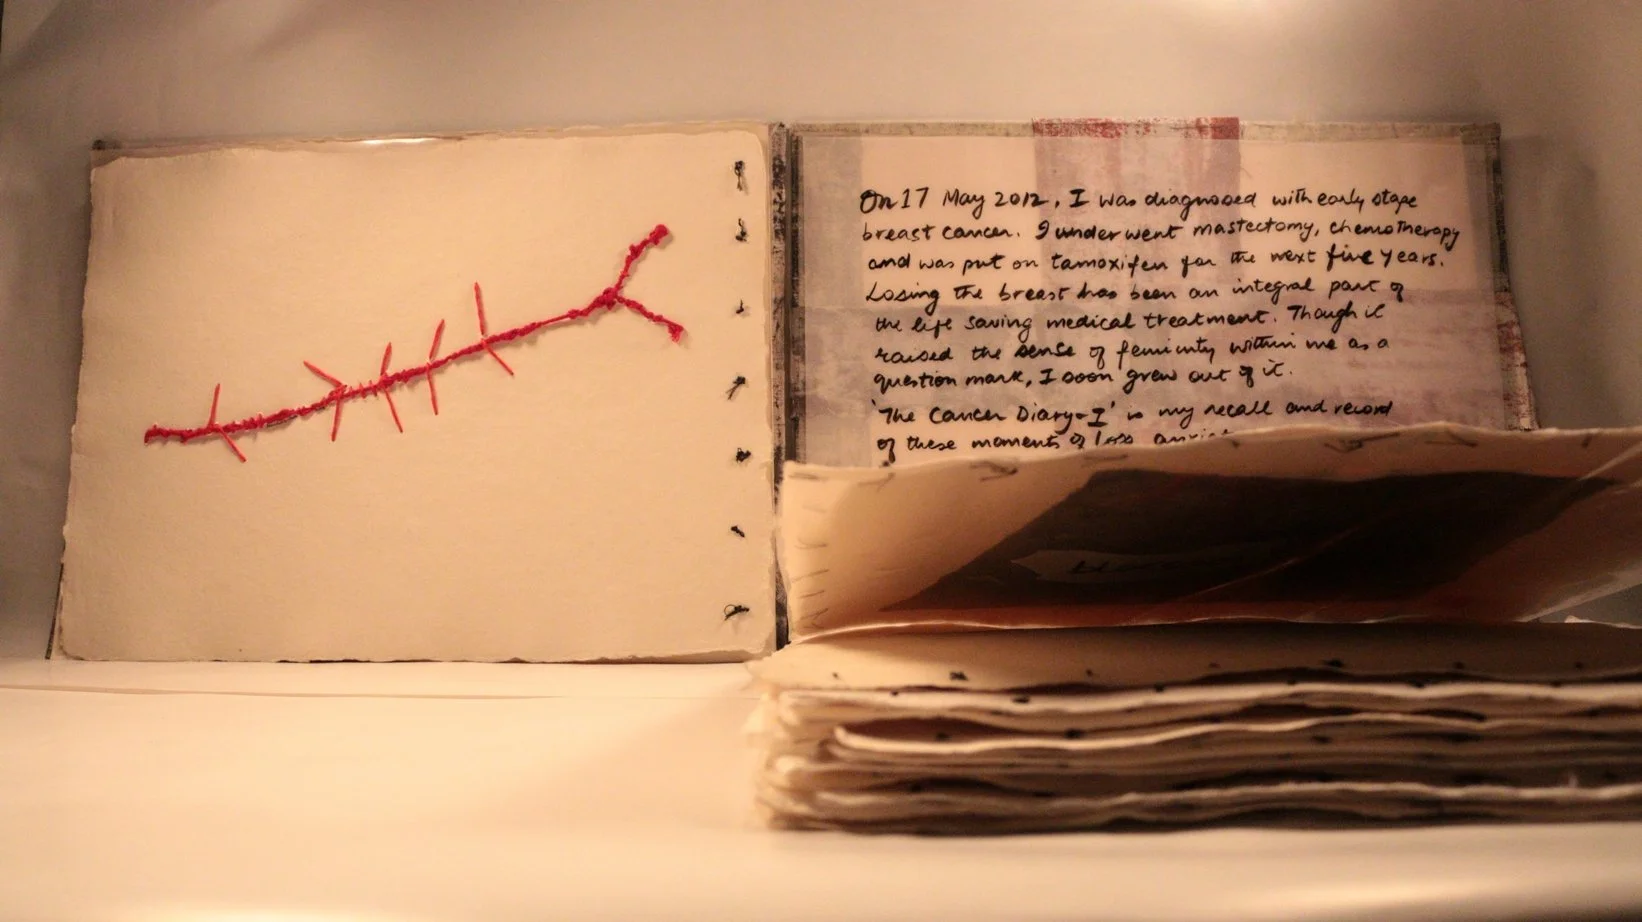 On 17 May 2012, I was diagnosed with early stage
breast cancer. I underwent mastectomy, chemotherapy
and was put on tamoxifen for the next five years.
Losing the breast has been an integral part of
the life saving medical treatment. Though it
raised the sense of feminity within me as a
question mark, I soon grew out of it.
'The Cancer Diary-I' is my recall and record
of these moments of loss